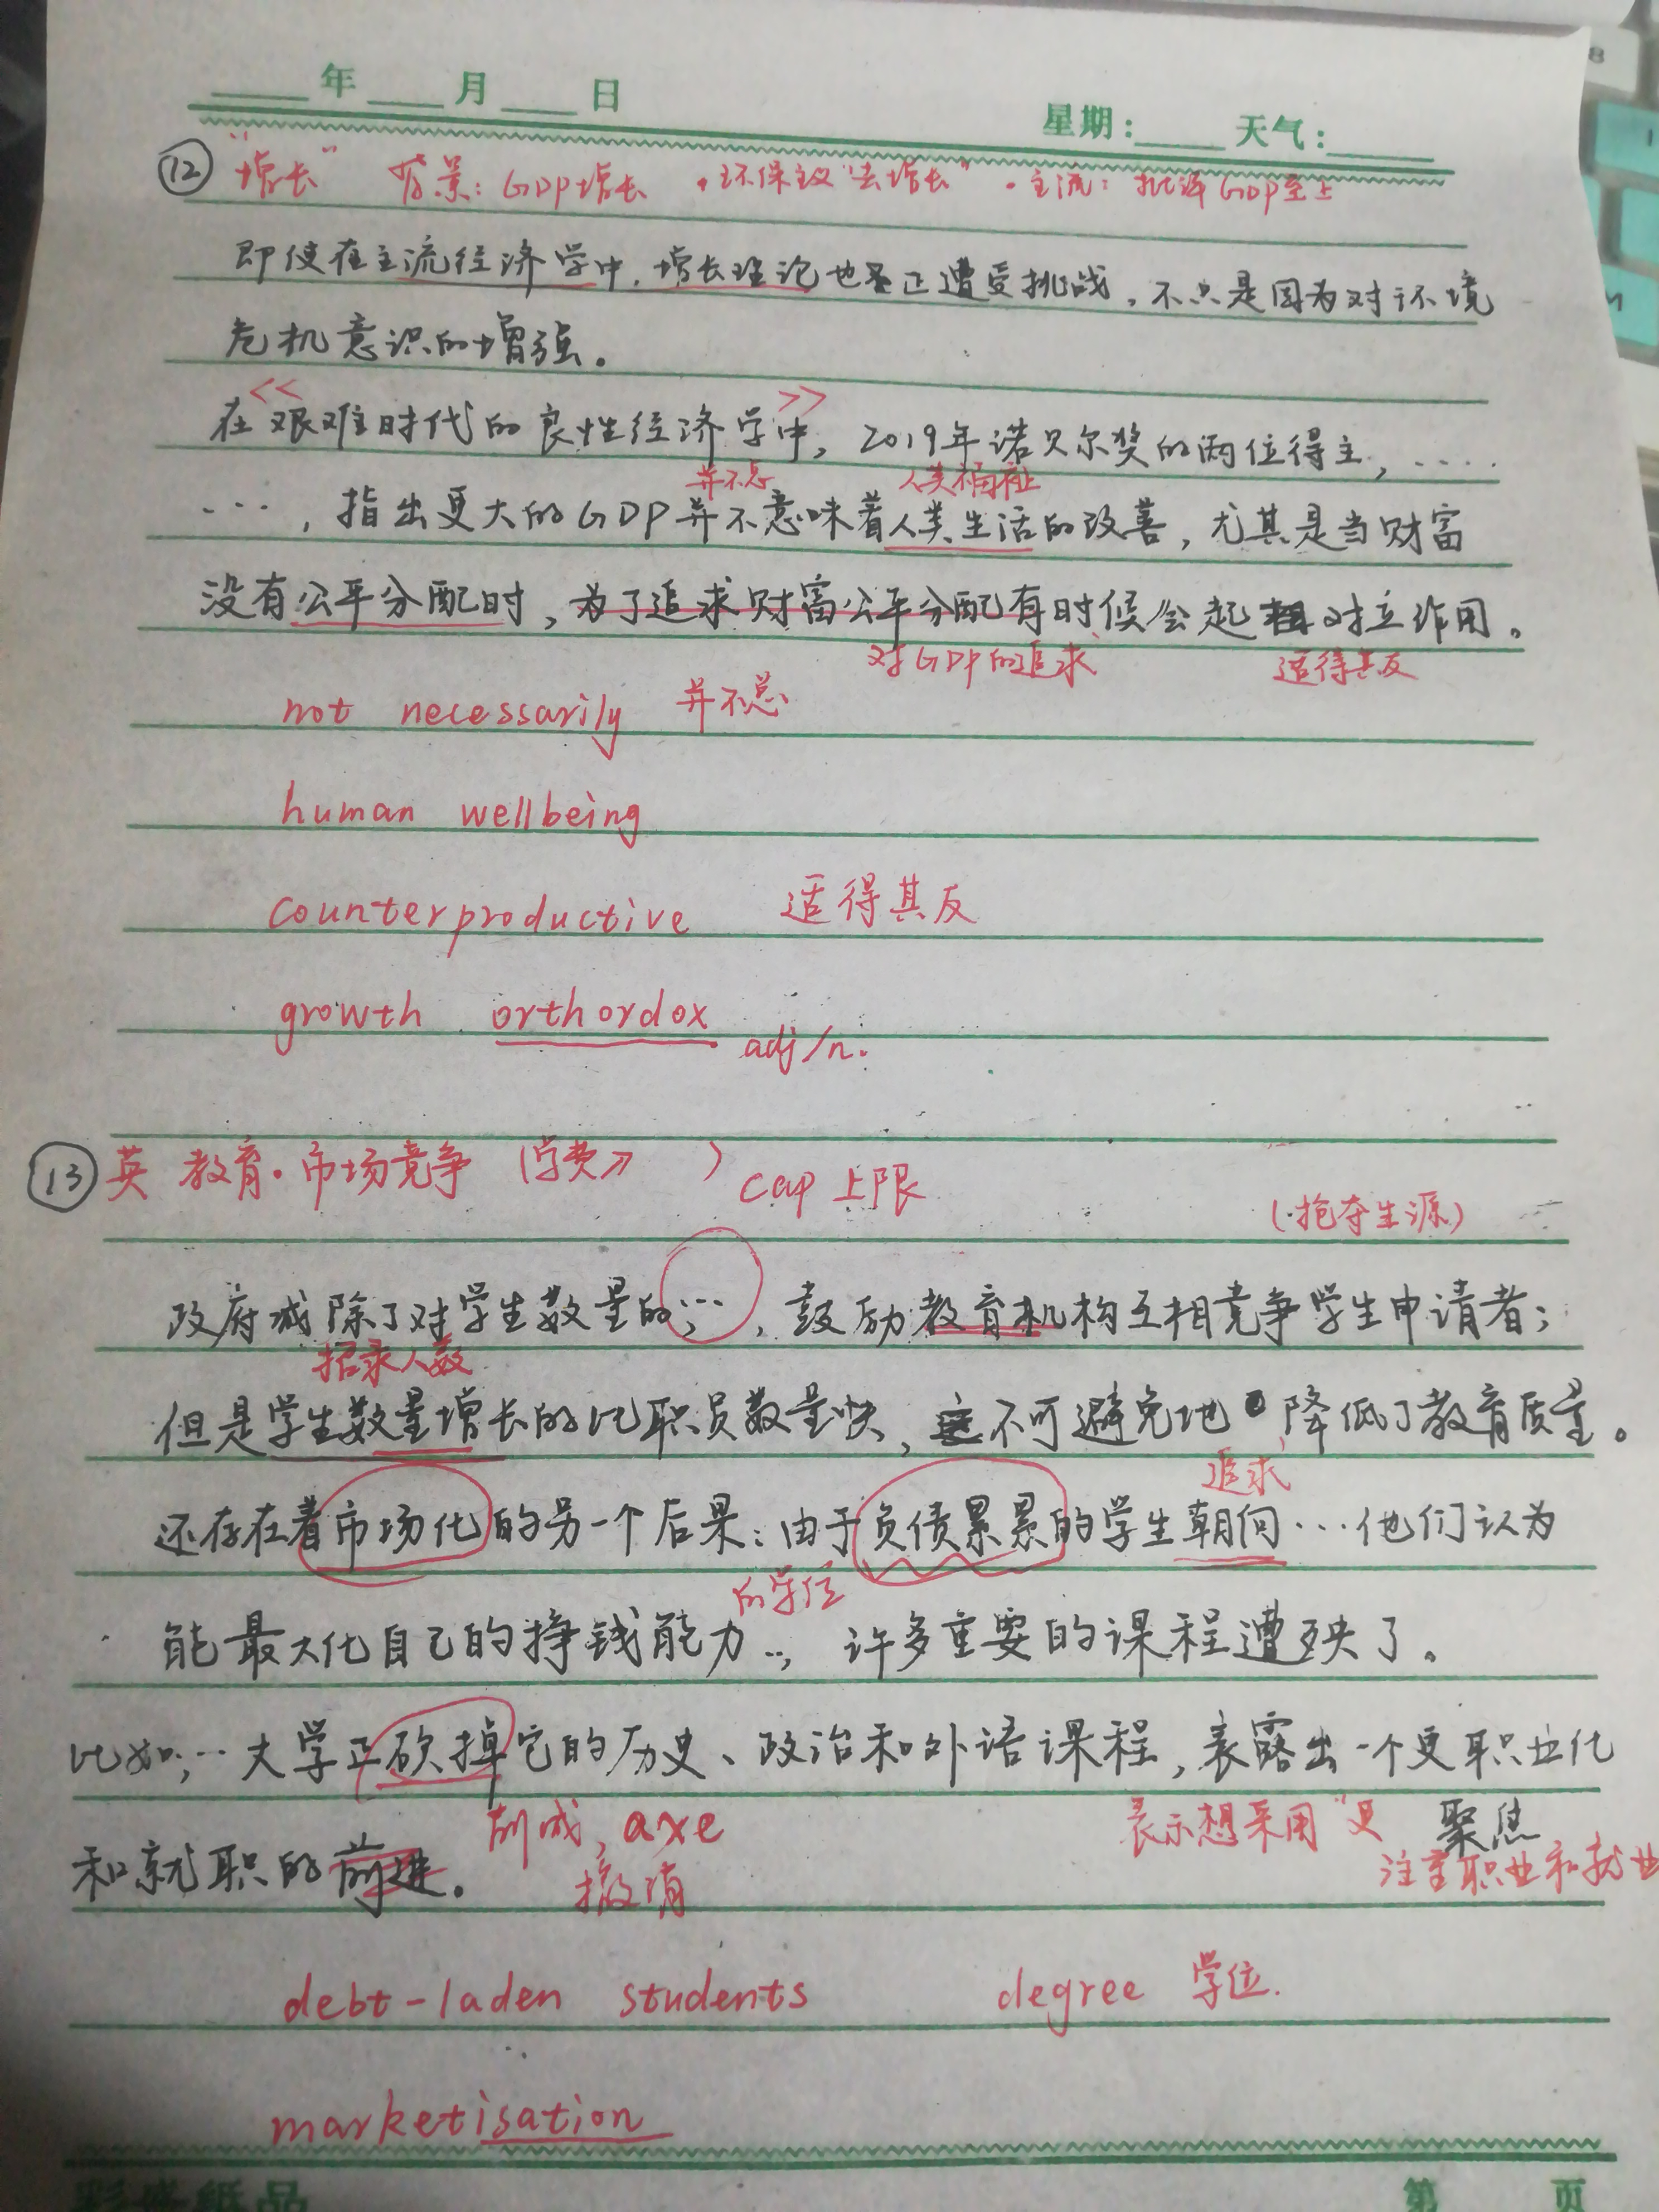 年 月 日
星期: 天气:
⑫ "增长" 背景: GDP增长 ·环保主义"去增长" ·主流: 批评GDP至上
即使在主流经济学中,增长理论也正遭受挑战,不只是因为对环境
危机意识的增强。
在《艰难时代的良性经济学》中,2019年诺贝尔奖的两位得主,……
并不总 人类福祉
…,指出更大的GDP并不意味着人类生活的改善,尤其是当财富
没有公平分配时,为了追求财富公平分配有时候会起对立作用。
对GDP的追求 适得其反
not necessarily 并不总
human wellbeing
counterproductive 适得其反
growth orthordox adj/n.
⑬ 英 教育·市场竞争 (学费↗ ) cap 上限
(抢夺生源)
政府减除了对学生数量的…,鼓励教育机构互相竞争学生申请者;
招录人数
但是学生数量增长的比职员数量快,不可避免地降低了教育质量。
追求
还存在着市场化的另一个后果:由于负债累累的学生朝向…他们认为
的学位
能最大化自己的挣钱能力…,许多重要的课程遭殃了。
比如,…大学正砍掉它的历史、政治和外语课程,表露出一个更职业化
削减, axe 表示想采用"更 聚焦
和就职的前进。 撤消 注重职业和就业
debt-laden students degree 学位.
marketisation
第 页